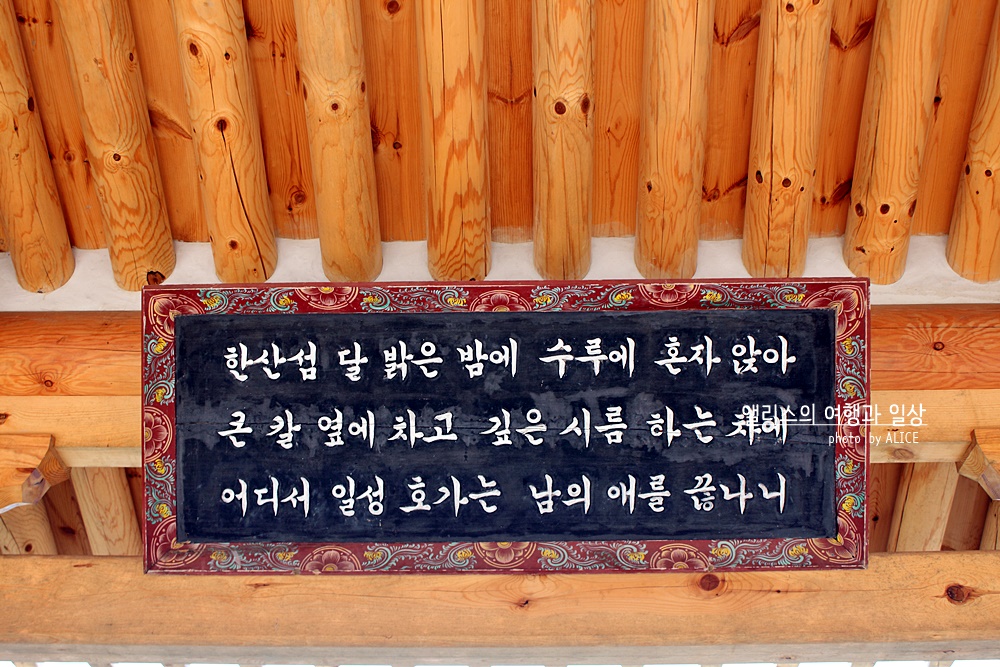 한산섬 달 밝은 밤에 수루에 혼자 앉아
큰 칼 옆에 차고 깊은 시름 하는 차에
어디서 일성 호가는 남의 애를 끊나니
앨리스의 여행과 일상
photo by ALICE